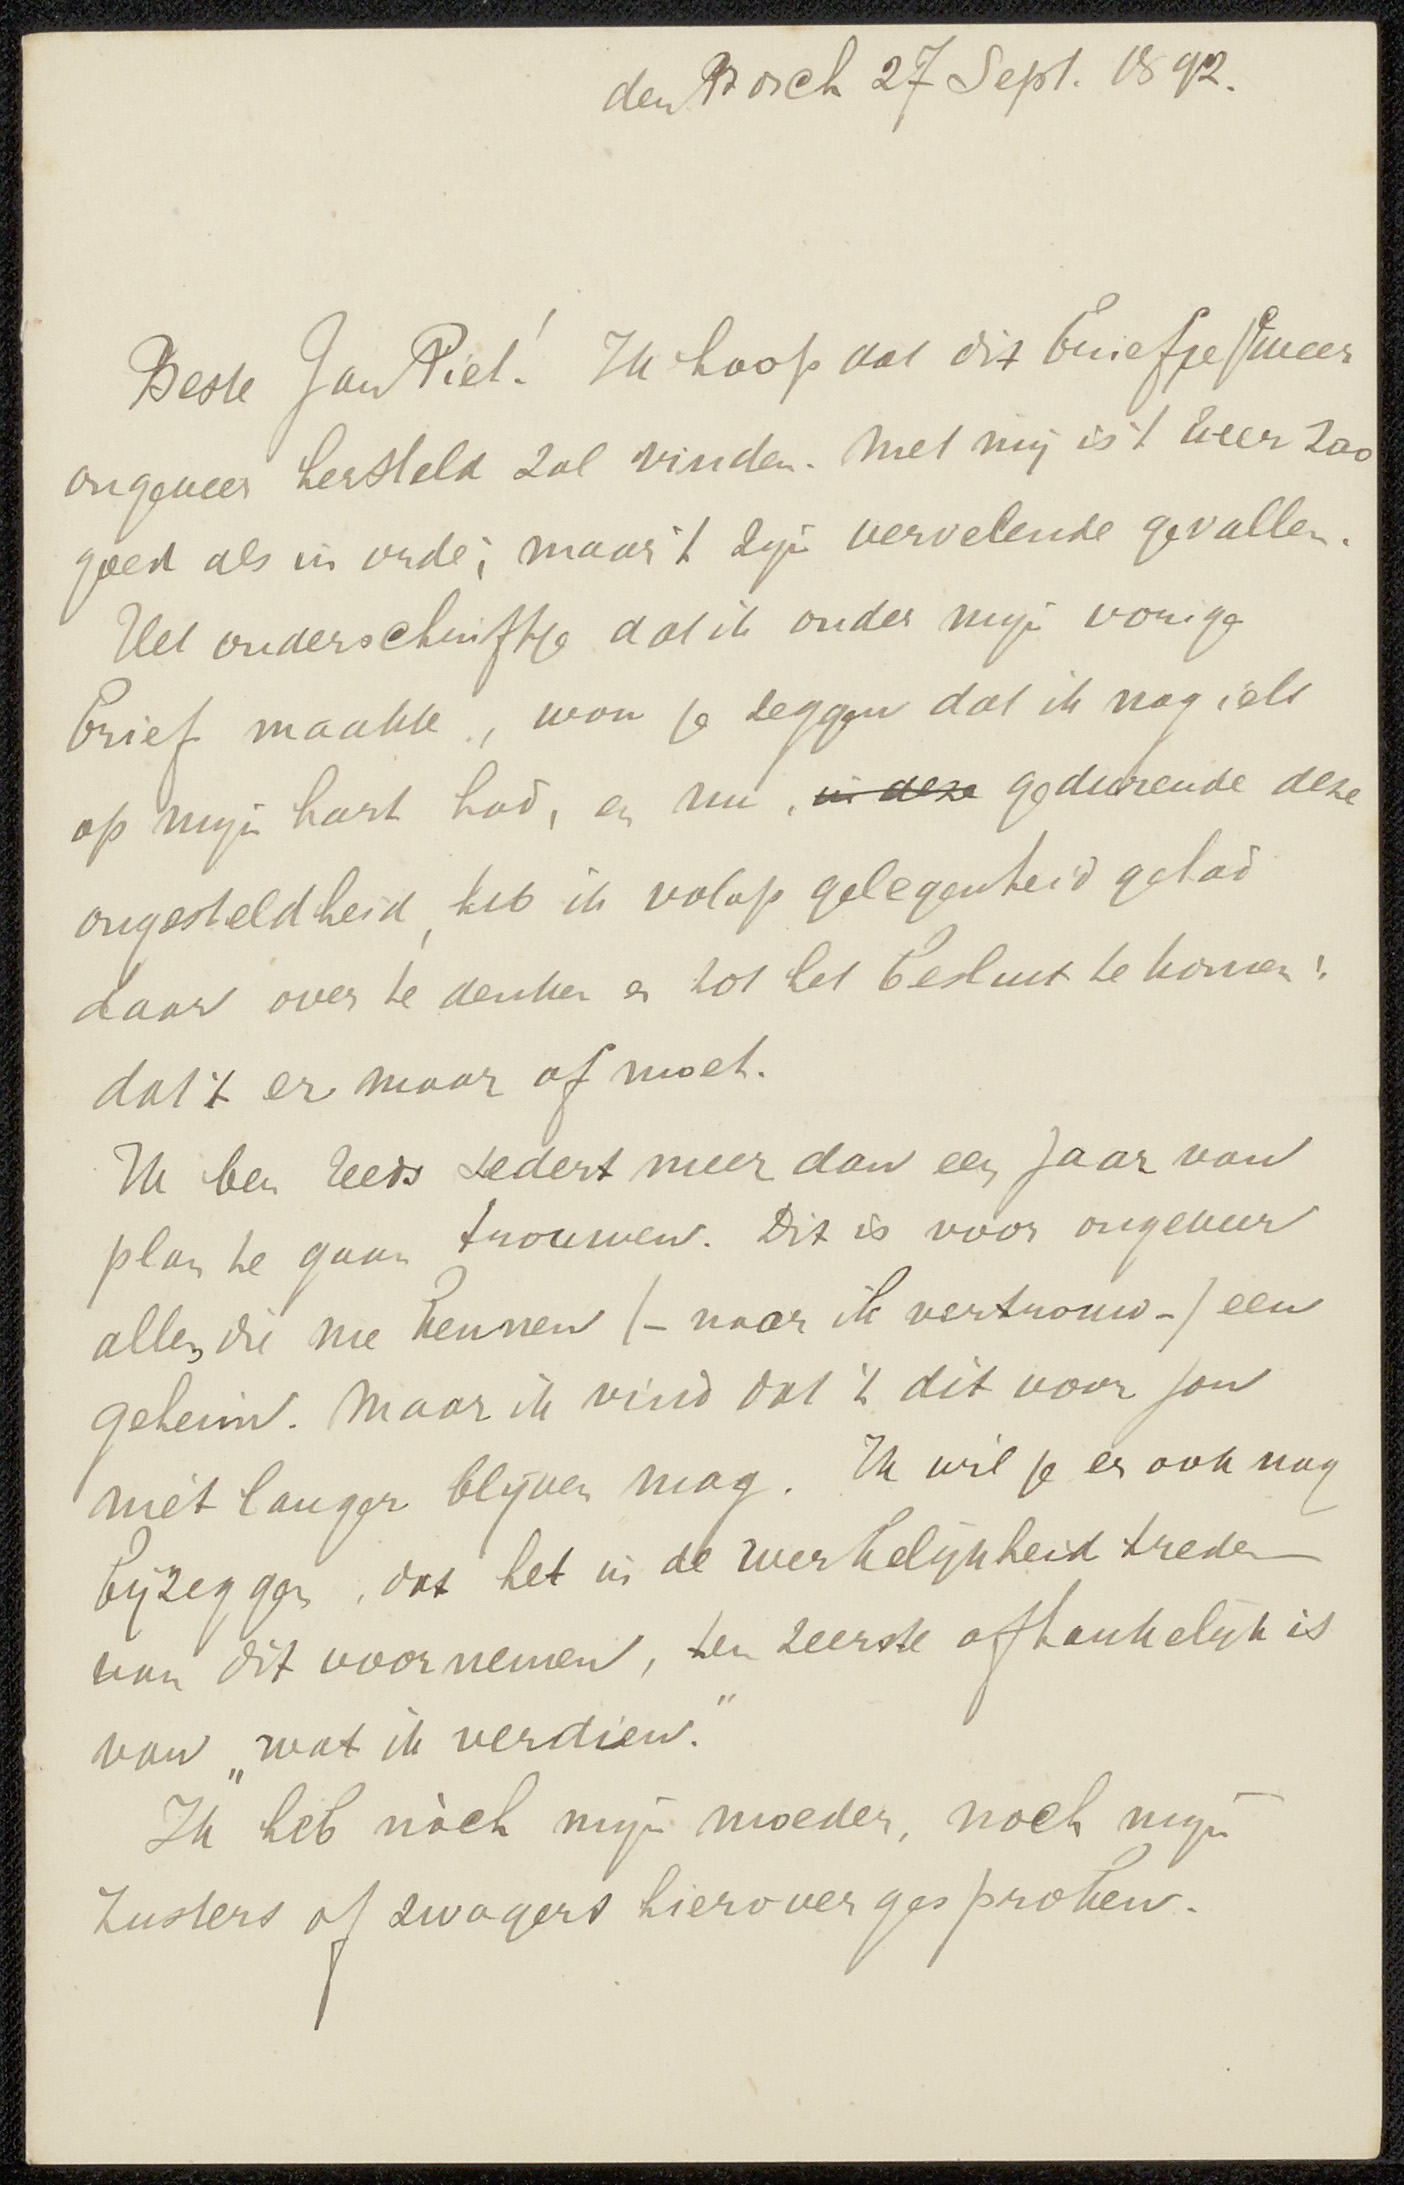 den Bosch 27 Sept. 1892.
Beste Jan Piet! Ik hoop dat dit briefje je weer
ongeveer hersteld zal vinden. Met mij is 't weer zoo
goed als in orde; maar 't zijn vervelende gevallen.
Het onderschriftje dat ik onder mijn vorige
brief maakte, wou je zeggen dat ik nog iets
op mijn hart had, en nu, in deze gedurende deze
ongesteldheid, heb ik volop gelegenheid gehad
daar over te denken en tot het besluit te komen:
dat 't er maar af moet.
Ik ben reeds sedert meer dan een jaar van
plan te gaan trouwen. Dit is voor ongeveer
allen die me kennen (- naar ik vertrouw -) een
geheim. Maar ik vind dat 't dit voor jou
niet langer blijven mag. Ik wil je er ook nog
bijzeggen, dat het in de werkelijkheid treden
van dit voornemen, ten zeerste afhankelijk is
van „wat ik verdien."
Ik heb nòch mijn moeder, noch mijn
zusters of zwagers hierover gesproken.